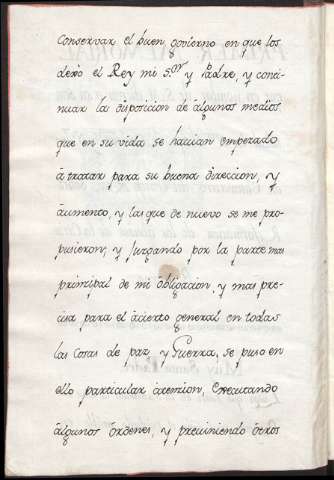 Conservar el buen govierno en que los
dexò el Rey mi S.or y Padre, y conti-
nuar la disposicion de algunos medios
que en su vida se havian empezado
à tratar para su buena direccion, y
aumento, y las que de nuevo se me pro-
pusieron; y Juzgando por la parte mas
principal de mi obligacion, y mas pre-
cisa para el acierto general en todas
las Cosas de paz y Guerra, se puso en
ello particular atencion, Executando
algunos ordenes, y previniendo otros